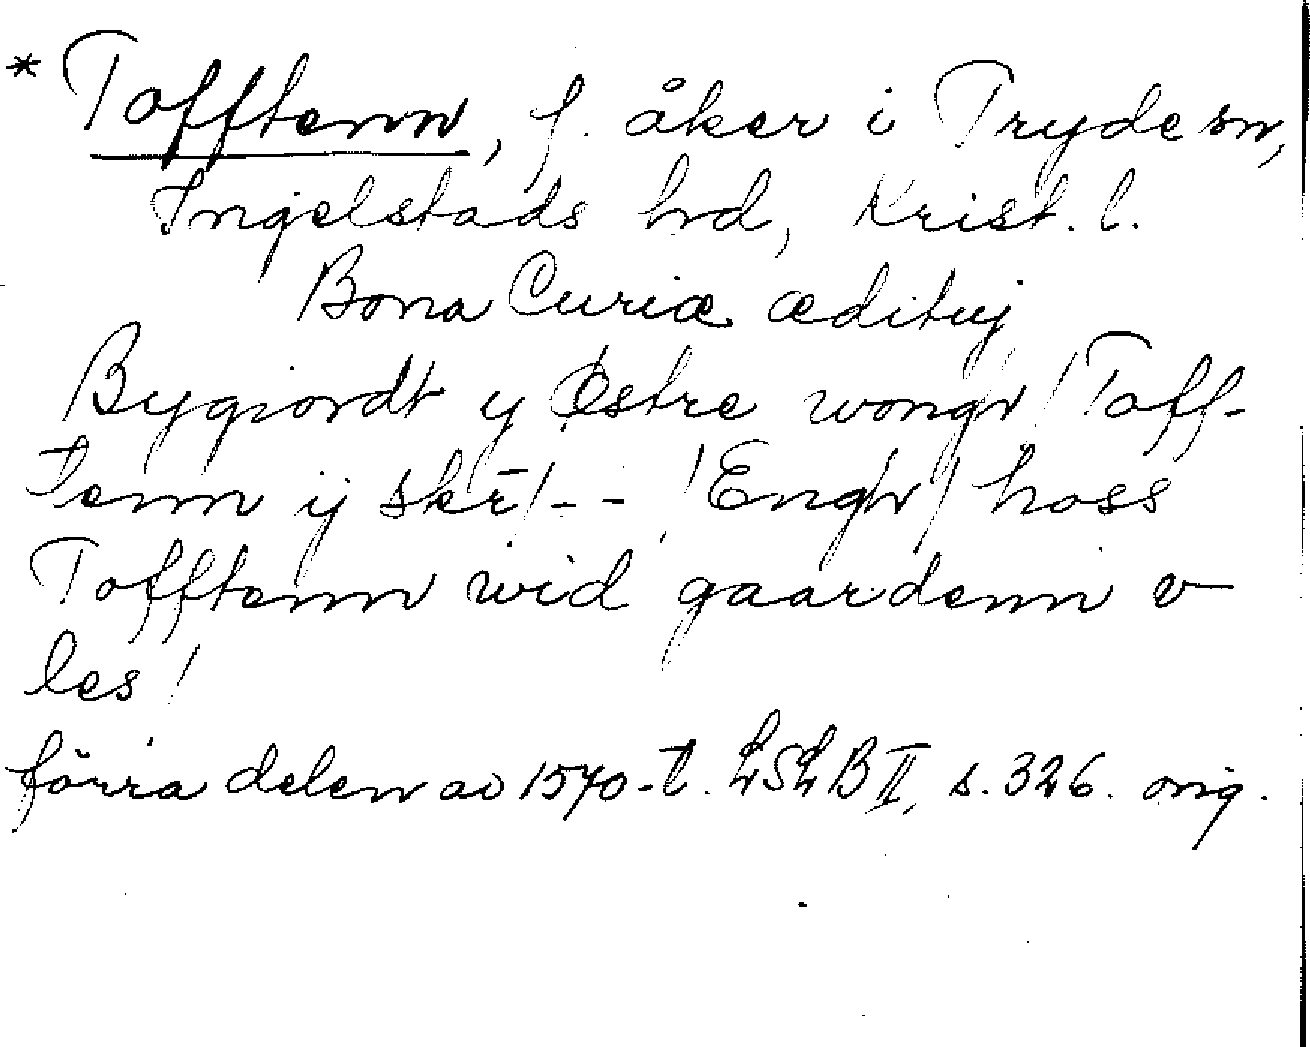 * Tofftenn, f. åker i Tryde sn,
Ingelstads hd, Krist. l.
Bona Curiæ æditуj
Bygiordt y Østre wongh / Toff-
tenn ij skr̄ / - - / Engh / hoss
Tofftenn wid gaardenn v
les /
förra delen av 1570-t. LSLB II, s. 326. orig.